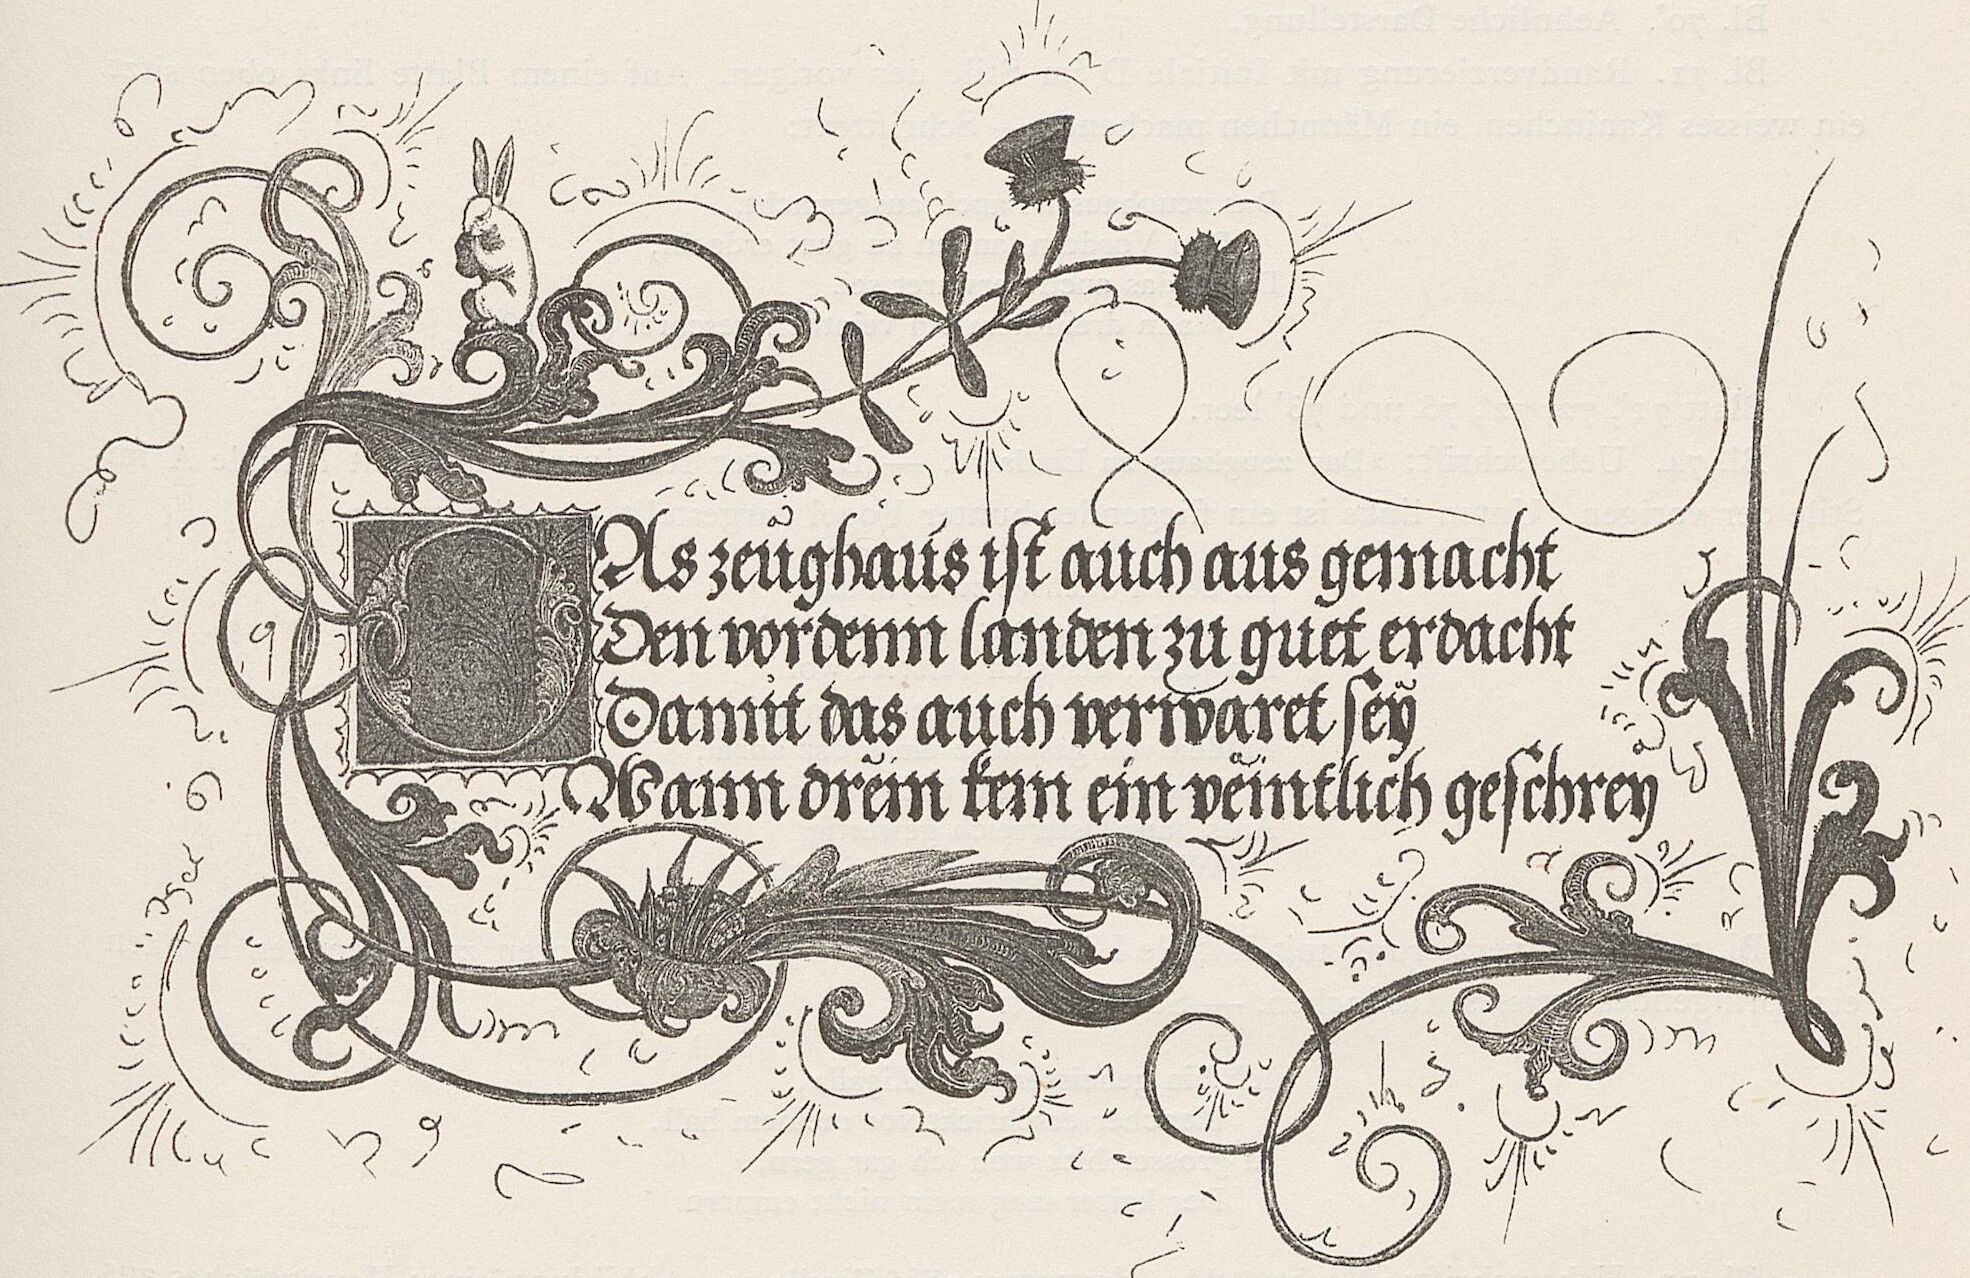 DAs zeŭghaus ist auch aus gemacht
Den vordenn landen zu guet erdacht
Damit das auch verwaret seÿ
Wann drein kem ein veintlich geschreÿ